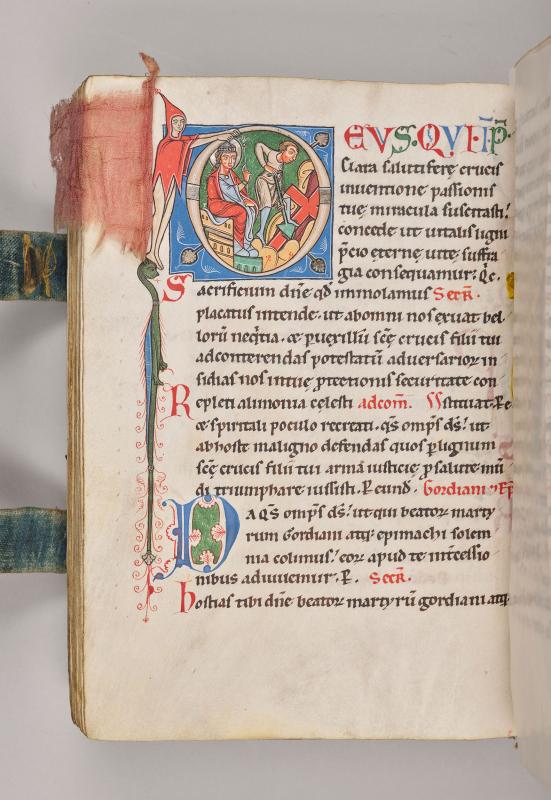 DEUS·QUI·I P̄·
clara salutiferę crucis
inuentione passionis
tuę miracula suscitasti:
concede ut uitalis ligni
p̄cio eternę uitę suffra
gia consequamur: Q̄e.
Sacrificium dn̄e qd̄ immolamus Secr̄.
placatus intende. ut ab omni nos exuat bel
lorū neq̄tia. & p uexillū sc̄ę crucis filii tui
ad conterendas potestatū aduersariorꝝ in
sidias nos in tuę ꝓtectionis securitate con
Repleti alimonia cęlesti adcom̄. Sstituat. P̄ e
& spiritali poculo recreati. qs̄ omp̄s ds̄. ut
ab hoste maligno defendas quos p lignum
sc̄ę crucis filii tui arma iusticię p salute mū
di triumphare iussisti. P̄ eund̄. Gordiani & Ep̄
DA q̄s omp̄s ds̄: ut qui beatorꝝ marty
rum Gordiani atq; epimachi solem
nia colimus: eorꝝ apud te int̄cessio
nibus adiuuemur. P̄. Secr̄.
hostias tibi dn̄e beatorꝝ martyrū gordiani atq;